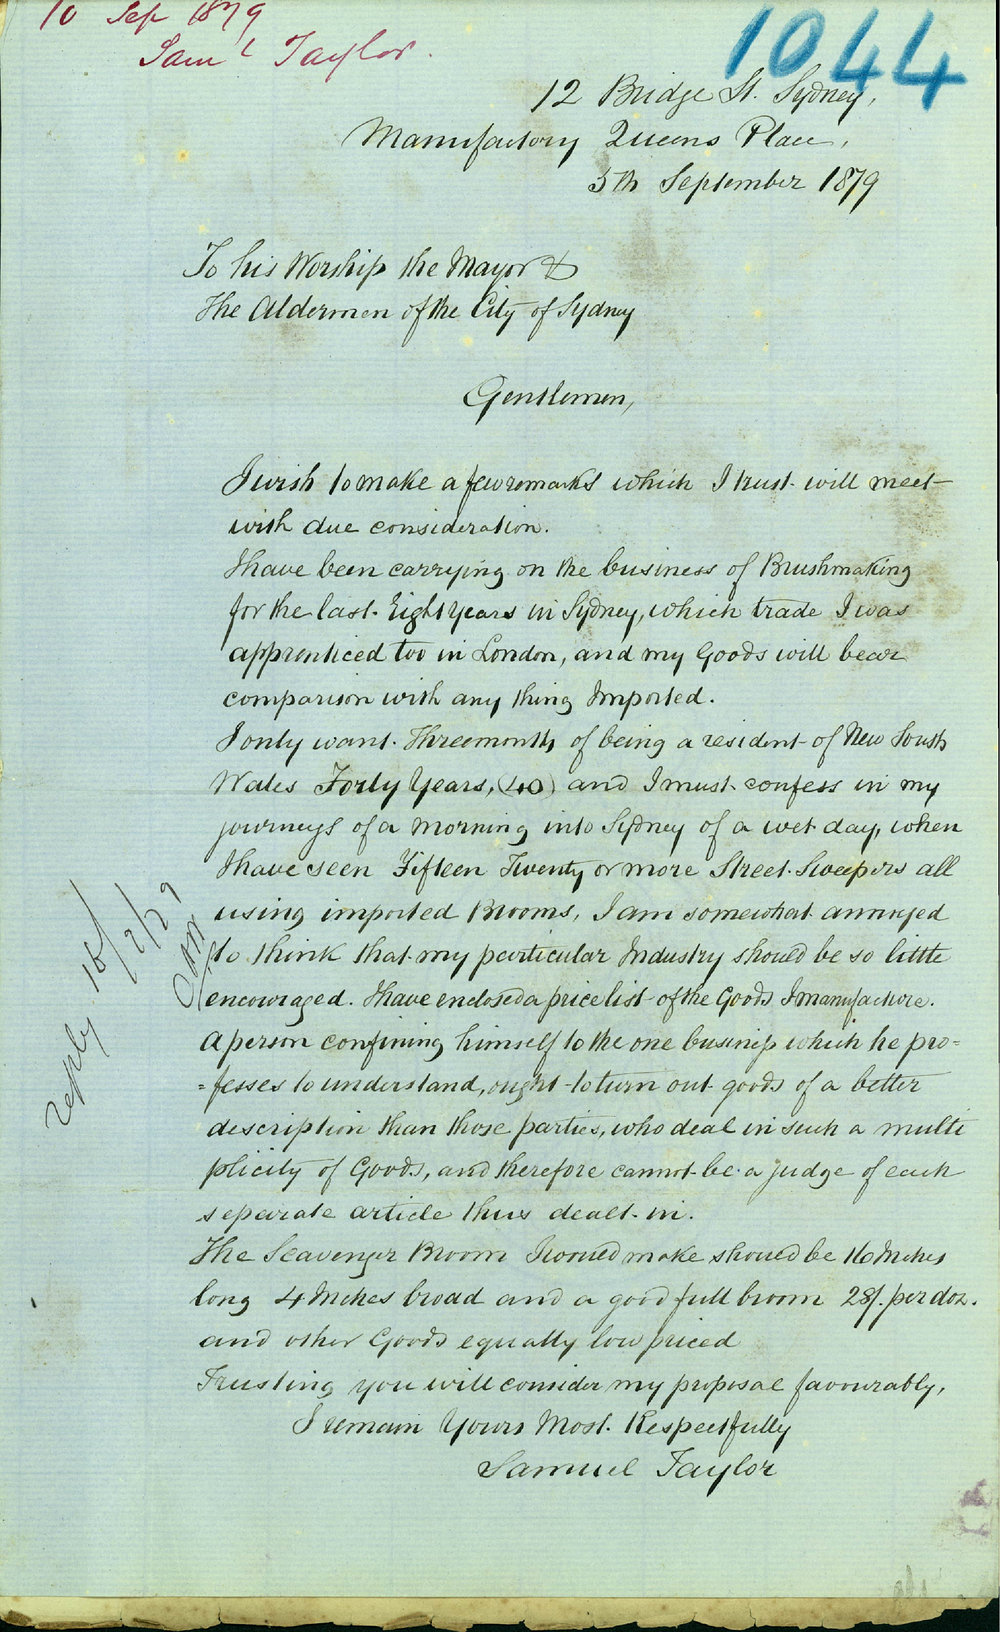 10 Sep 1879
Saml Taylor.
1044
12 Bridge St. Sydney,
Manufactory Queens Place,
5th September 1879
To his Worship the Mayor &
The Aldermen of the City of Sydney
Gentlemen,
I wish to make a few remarks which I trust will meet
with due consideration.
I have been carrying on the business of Brushmaking
for the last Eight years in Sydney, which trade I was
apprenticed too in London, and my Goods will bear
comparison with any thing Imported.
I only want Three months of being a resident of New South
Wales Forty Years, (40) and I must confess in my
journeys of a Morning into Sydney of a wet day, when
I have seen Fifteen Twenty or more Street Sweepers all
using imported Brooms, I am somewhat annoyed
to think that my particular Industry should be so little
encouraged. I have enclosed a price list of the Goods I manufacture.
A person confining himself to the one business which he pro=
=fesses to understand, ought to turn out goods of a better
description than those parties, who deal in such a multi
plicity of Goods, and therefore cannot be a judge of each
separate article thus dealt in.
The Scavenger Broom I would make should be 16 Inches
long 4 Inches broad and a good full broom 28/. per doz.
and other Goods equally low priced
Trusting you will consider my proposal favourably,
I remain Yours Most Respectfully
Samuel Taylor
reply